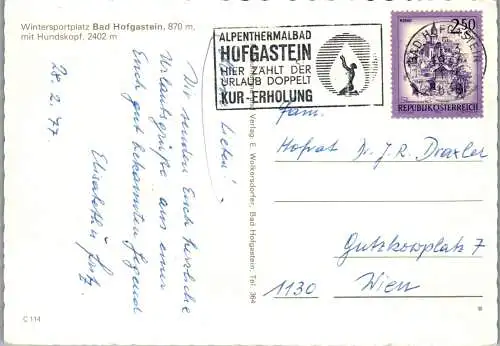 Wintersportplatz Bad Hofgastein, 870 m,
mit Hundskopf, 2402 m
28. 2. 77.
Ihr Lieben!
Wir senden Euch herzliche
Urlaubsgrüße aus einer
Euch gut bekannten Gegend
Elisabeth u. Fritz
C 114
Verlag E. Wolkersdorfer, Bad Hofgastein, Tel. 364
ALPENTHERMALBAD
HOFGASTEIN
HIER ZÄHLT DER
URLAUB DOPPELT
KUR-ERHOLUNG
BAD HOFGASTEIN
2.50
REPUBLIK ÖSTERREICH
Fam.
Hofrat Dr. J. R. Draxler
Gutzkowplatz 7
1130 Wien